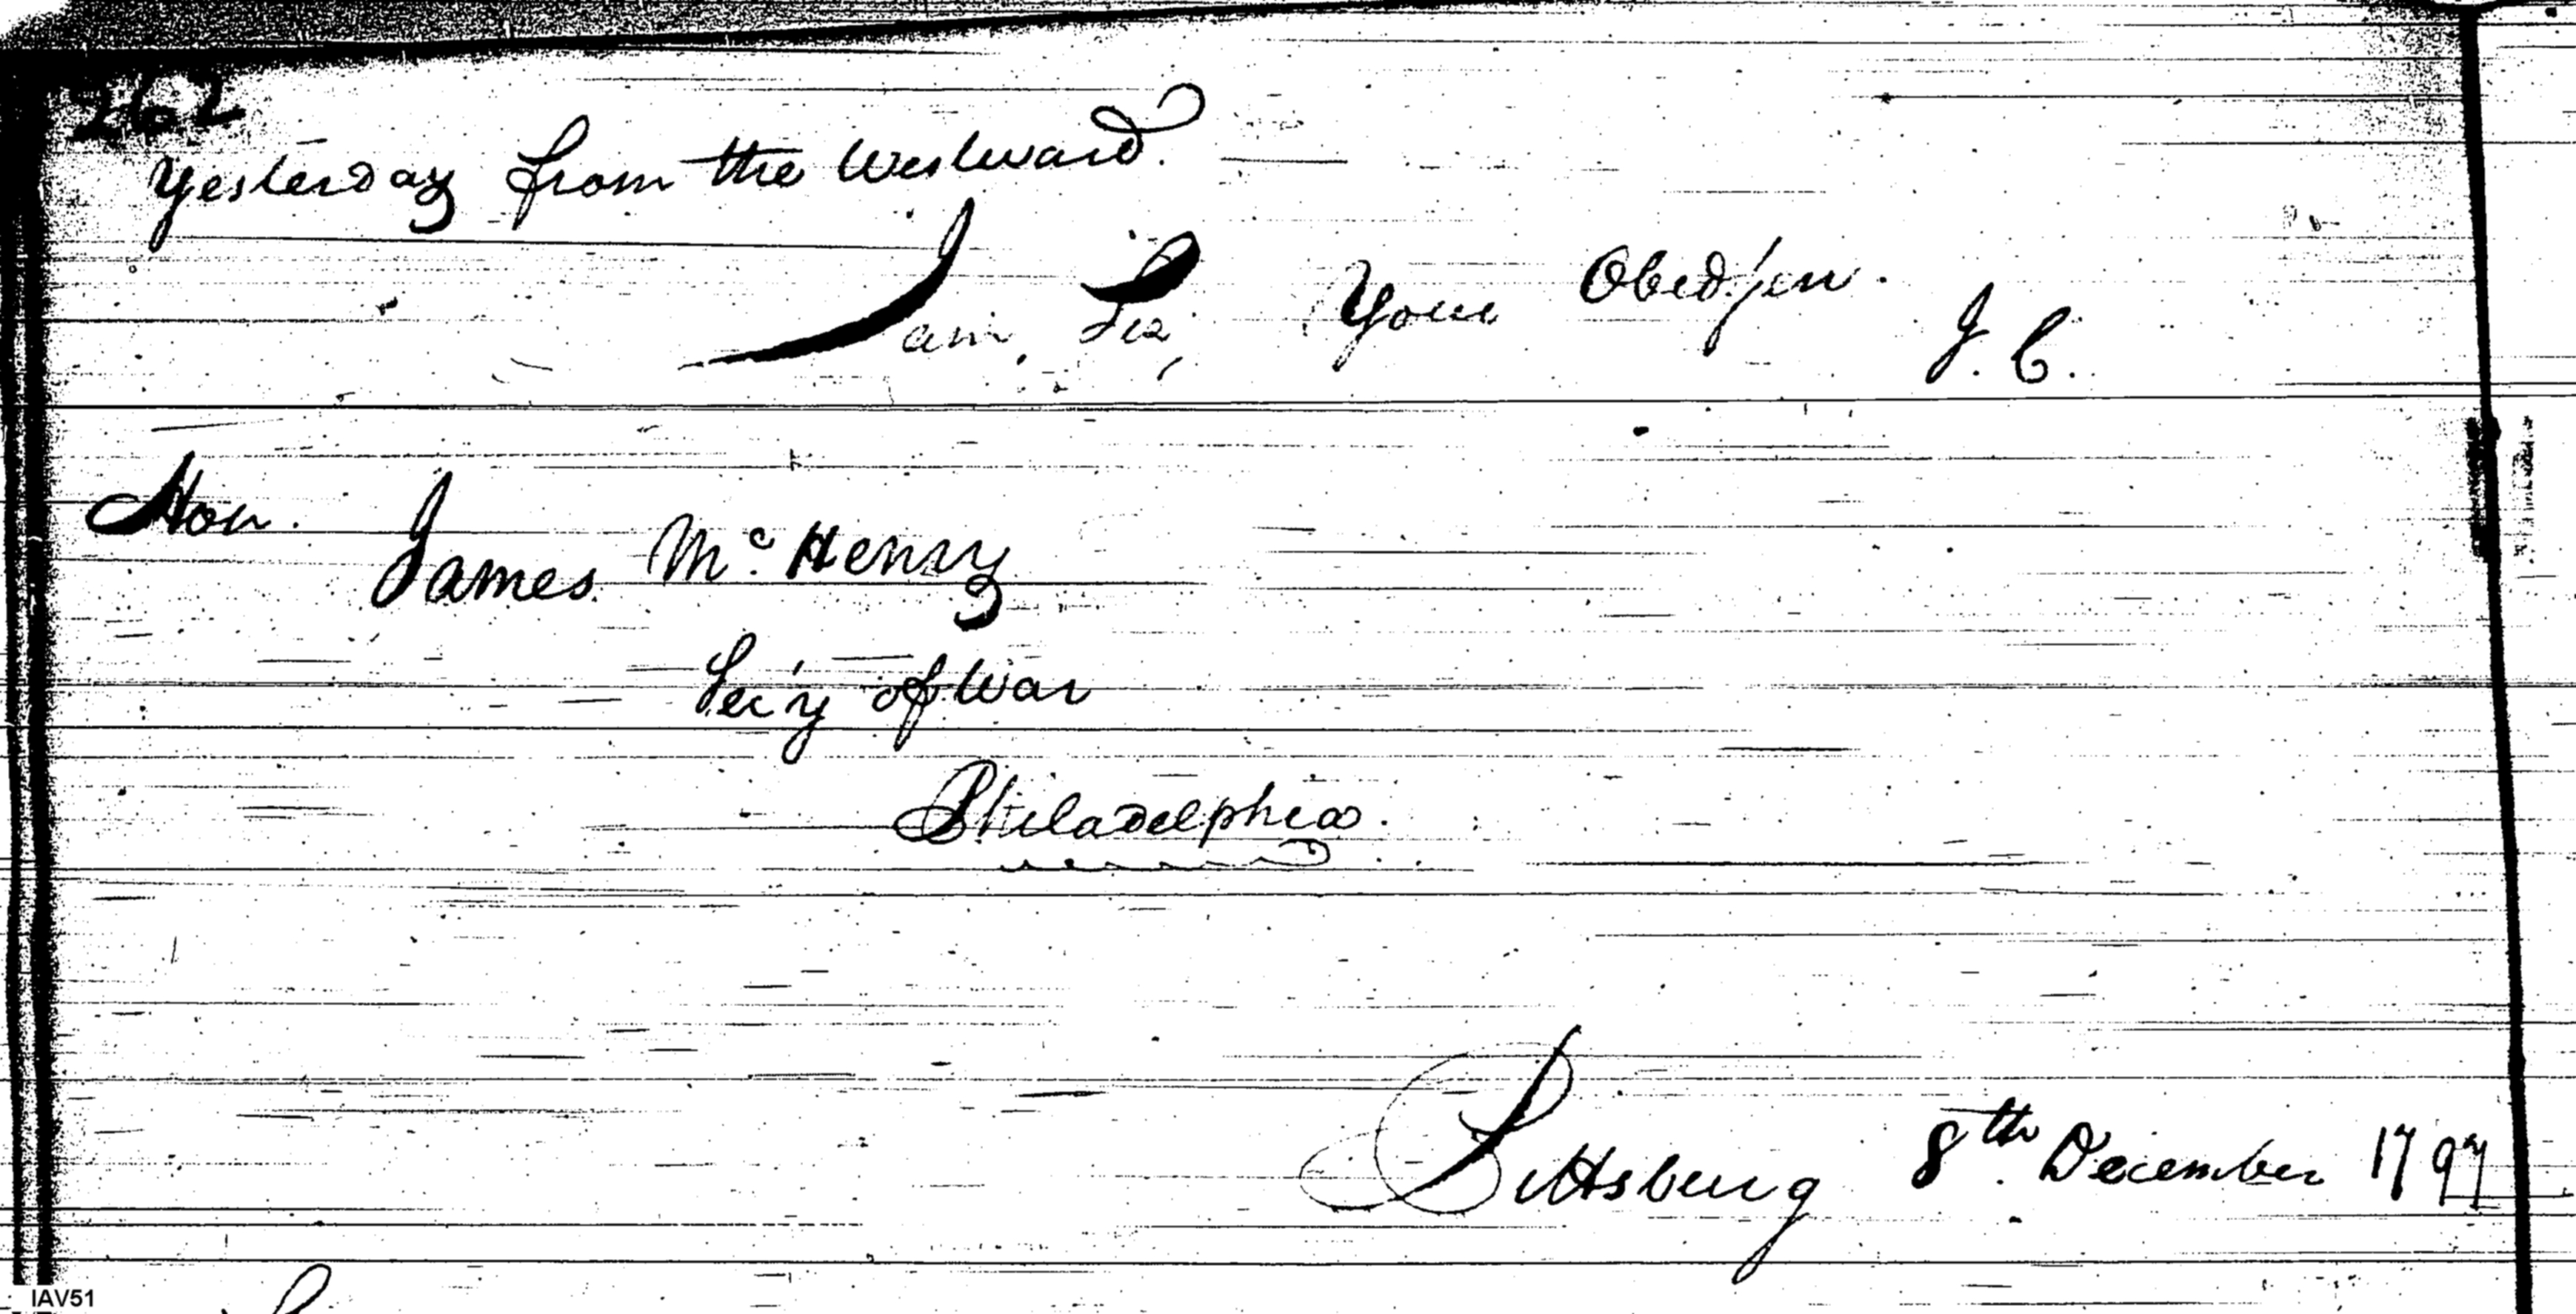 262
Yesterday from the Westward.
I am, Sir, Your Obed. Serv.
J. C.
Hon.
James Mc. Henry
Sec'y of War
Philadelphia.
Pittsburg 8th. December 1797
IAV51